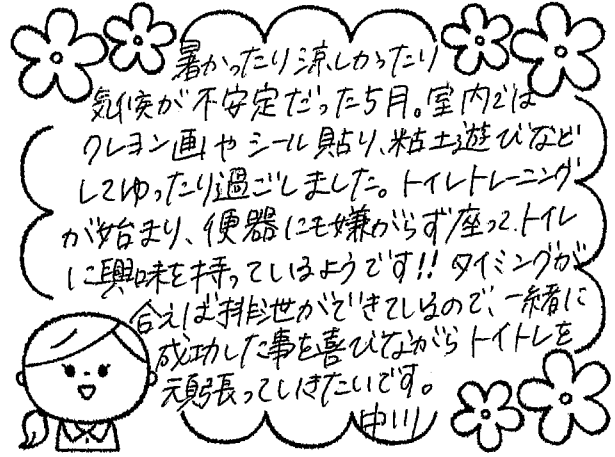 暑かったり涼しかったり
気候が不安定だった5月。室内では
クレヨン画やシール貼り、粘土遊びなど
してゆったり過ごしました。トイレトレーニング
が始まり、便器にも嫌がらず座って、トイレ
に興味を持っているようです!! タイミングが
合えば排泄ができているので、一緒に
成功した事を喜びながらトイトレを
頑張っていきたいです。
中川